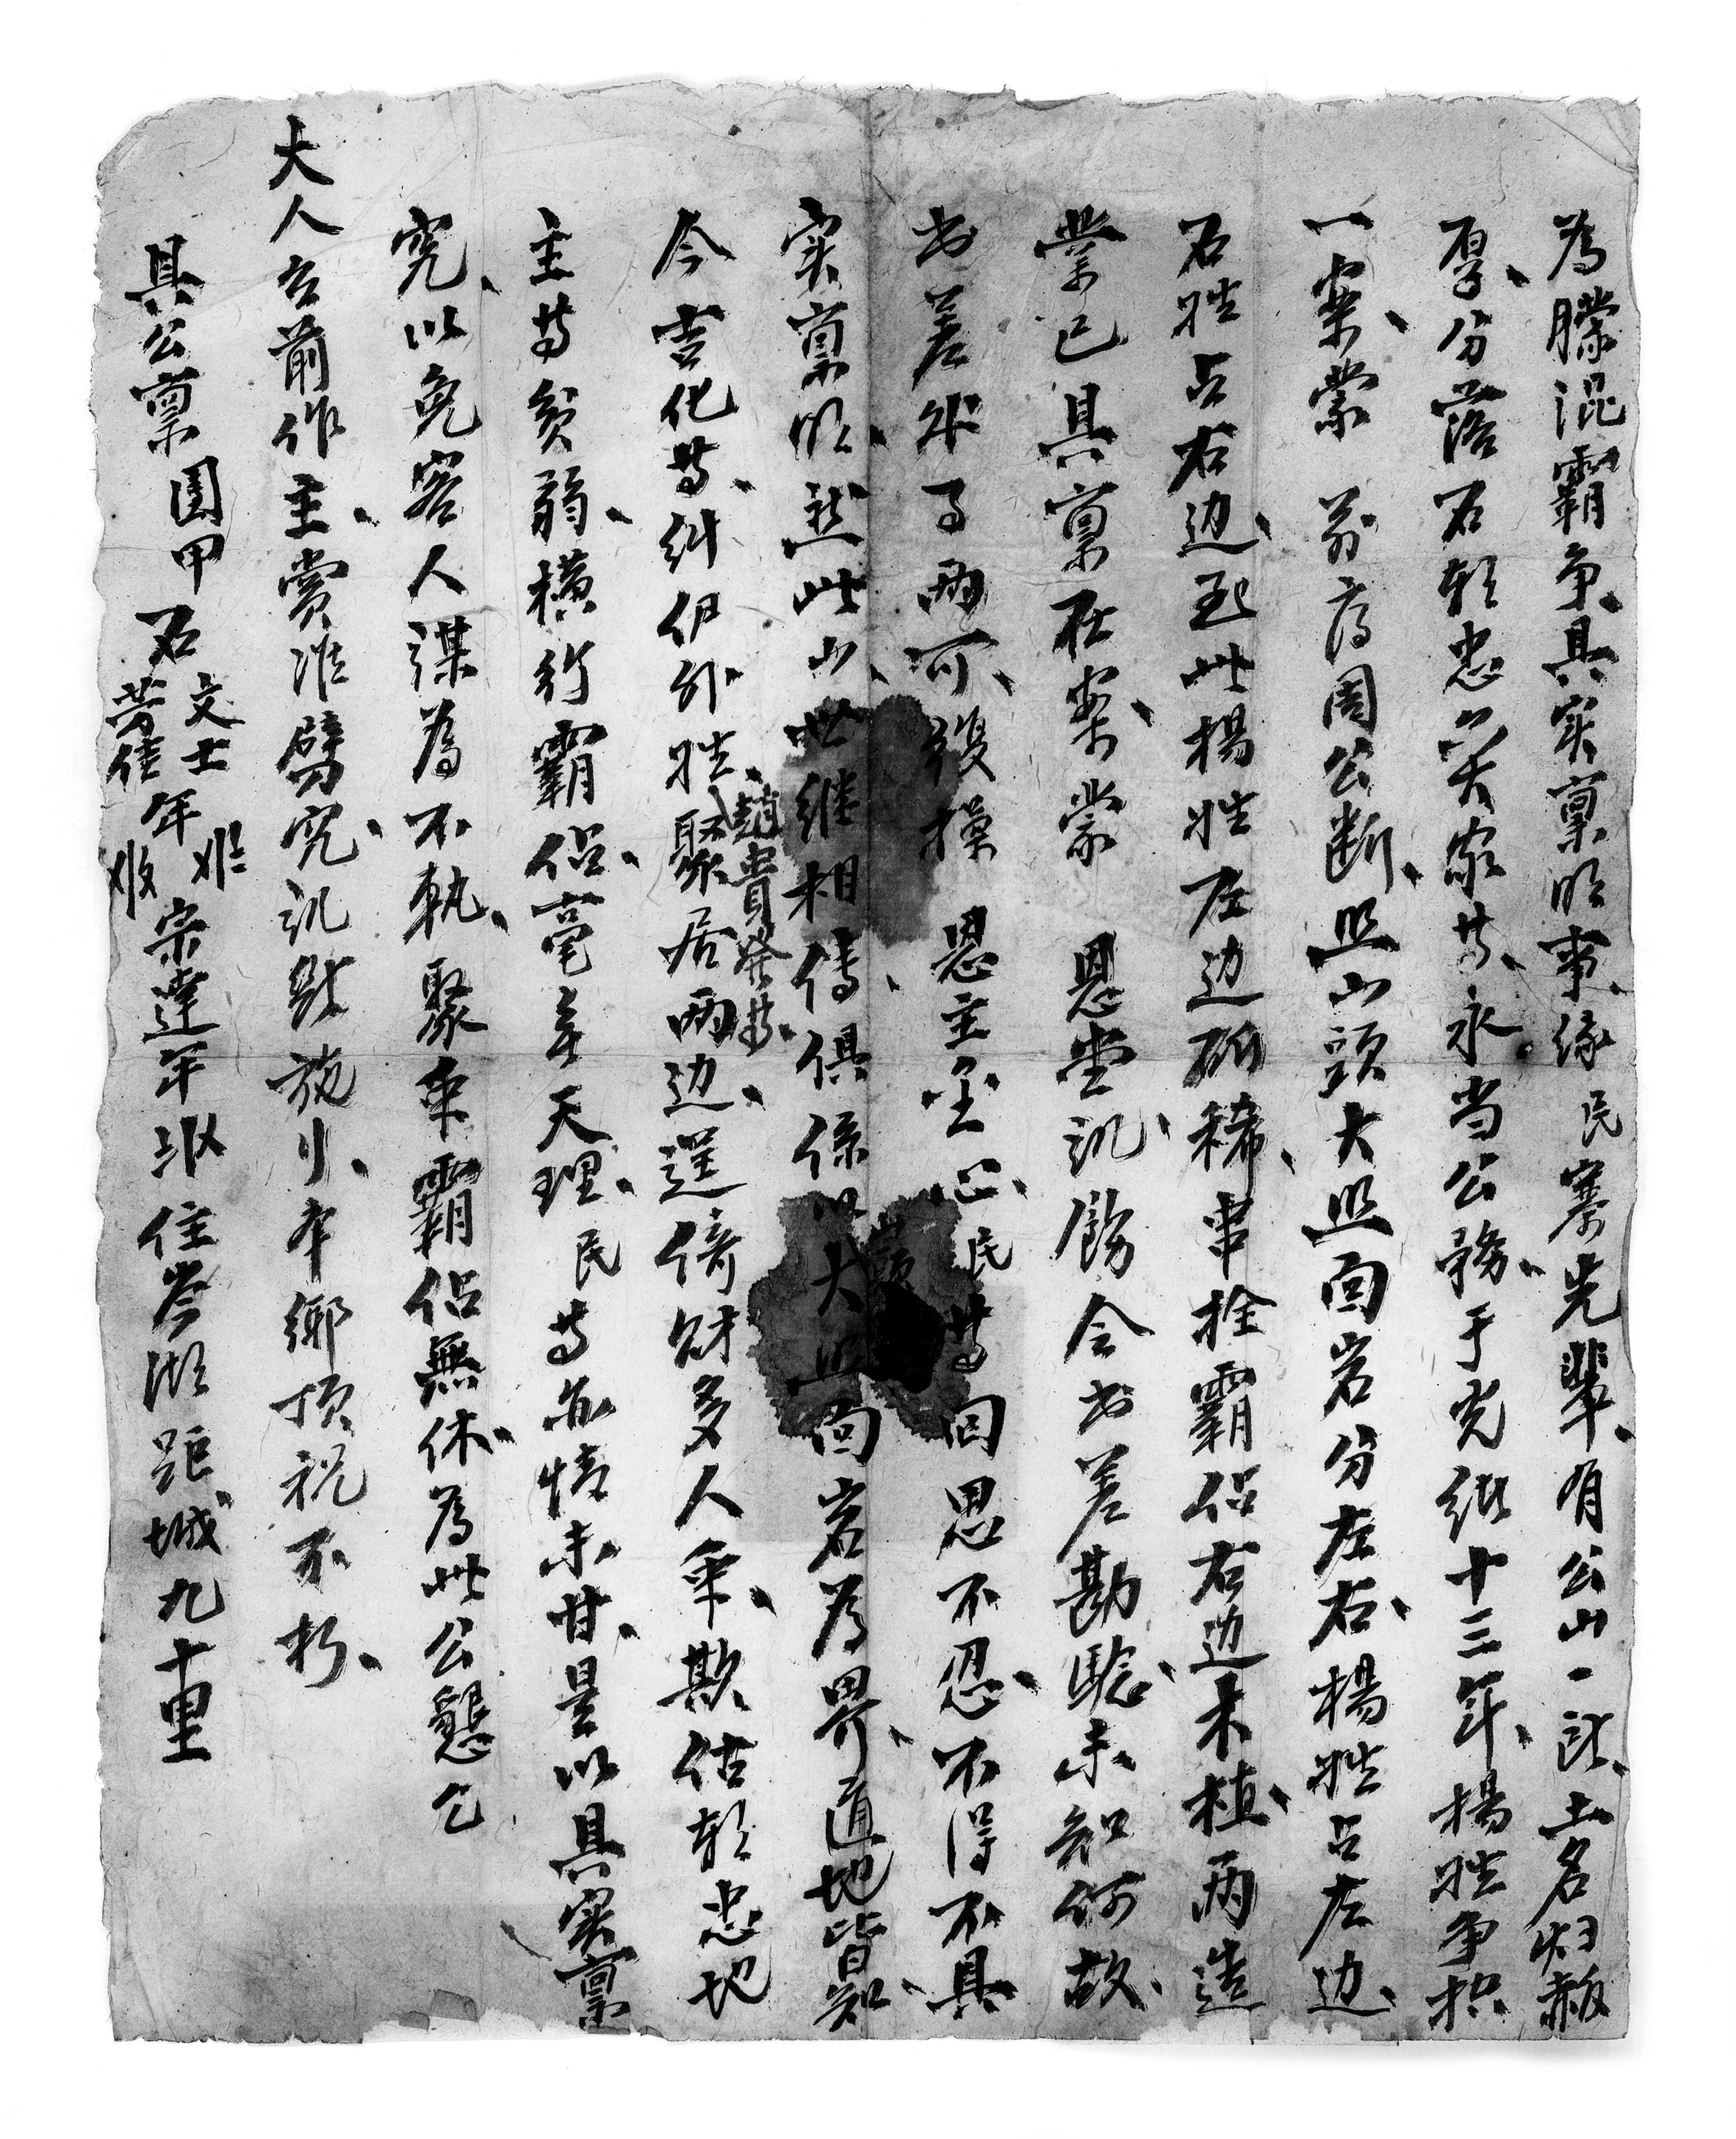 為朦混霸爭具实禀明事緣民寨先輩有公山一所土名归赧
厚分落石朝忠吴家等永当公務于光绪十三年楊姓争控
一案蒙 前府周公断照山頭大照面岩分左右楊姓占左边
石姓占右边至此楊姓左边砍稀串拴霸佔右边木植两造
業已具禀在案蒙 恩堂訊飭令书差勘騐未知何故
书差外了兩可復操 恩主金心民等回思不忍不得不具
实禀明然此山世继相傳俱係以山頭大照面岩為界通地皆知
今吉化等糾伊外姓趙貴發等聚居両边逞倚财多人衆欺估朝忠地
主等貧弱橫行霸佔毫无天理民等亦情未甘是以具实禀
究以免客人謀為不軌聚衆霸佔無休為此公懇乞
大人台前作主賞准劈究訊斷施行本鄉頂祝不朽
具公禀團甲石文士芳佳年 宗達年 住岑湖距城九十里